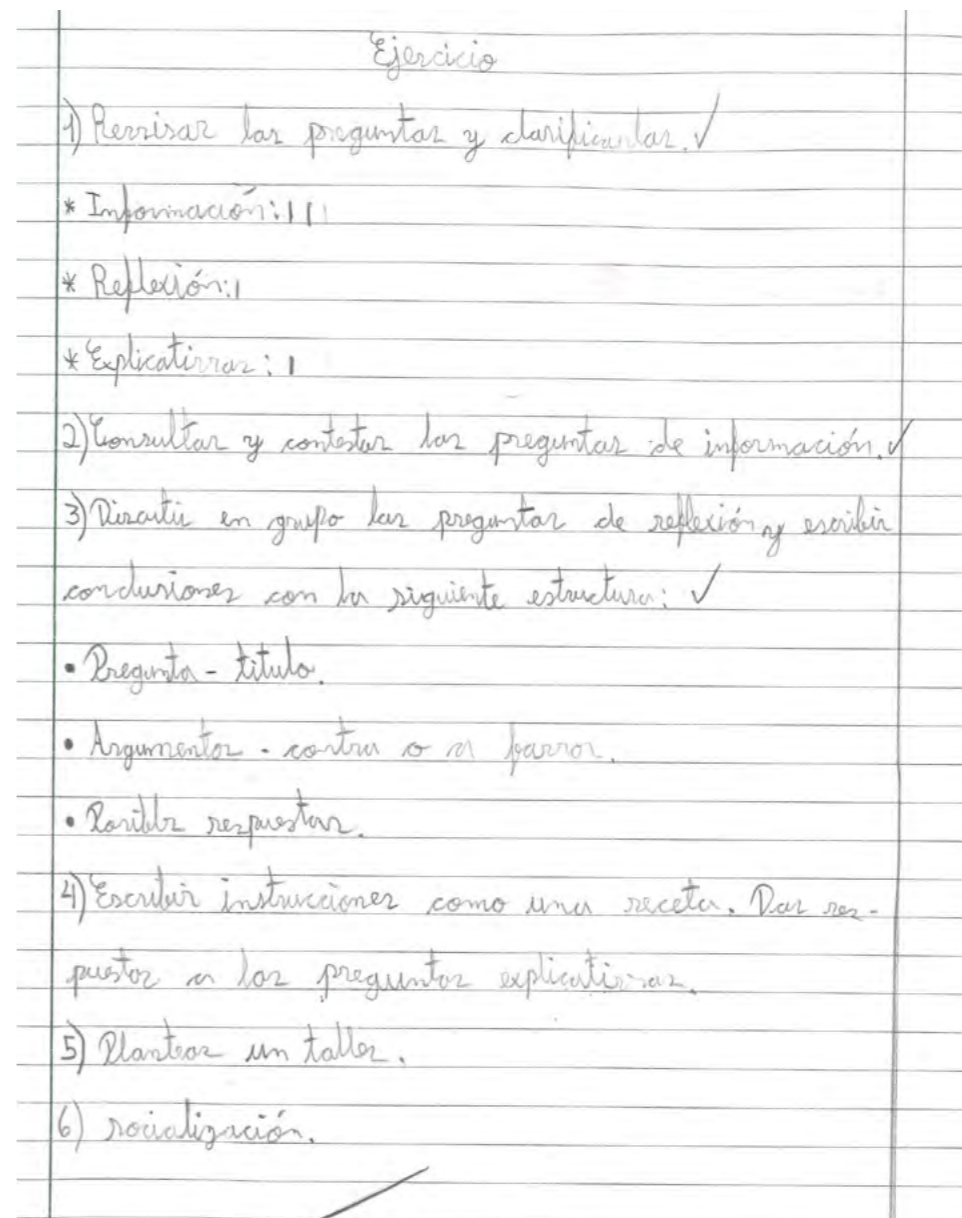 Ejercicio
1) Revisar las preguntas y clarificarlas. ✓
* Información: | | |
* Reflexión: |
* Explicativas: |
2) Consultar y contestar las preguntas de información. ✓
3) Discutir en grupo las preguntas de reflexión y escribir
conclusiones con la siguiente estructura: ✓
• Pregunta - titulo.
• Argumentos - contra o a favor.
• Posibles respuestas.
4) Escribir instrucciones como una receta. Dar res-
puestas a las preguntas explicativas.
5) Plantear un taller.
6) socialización.